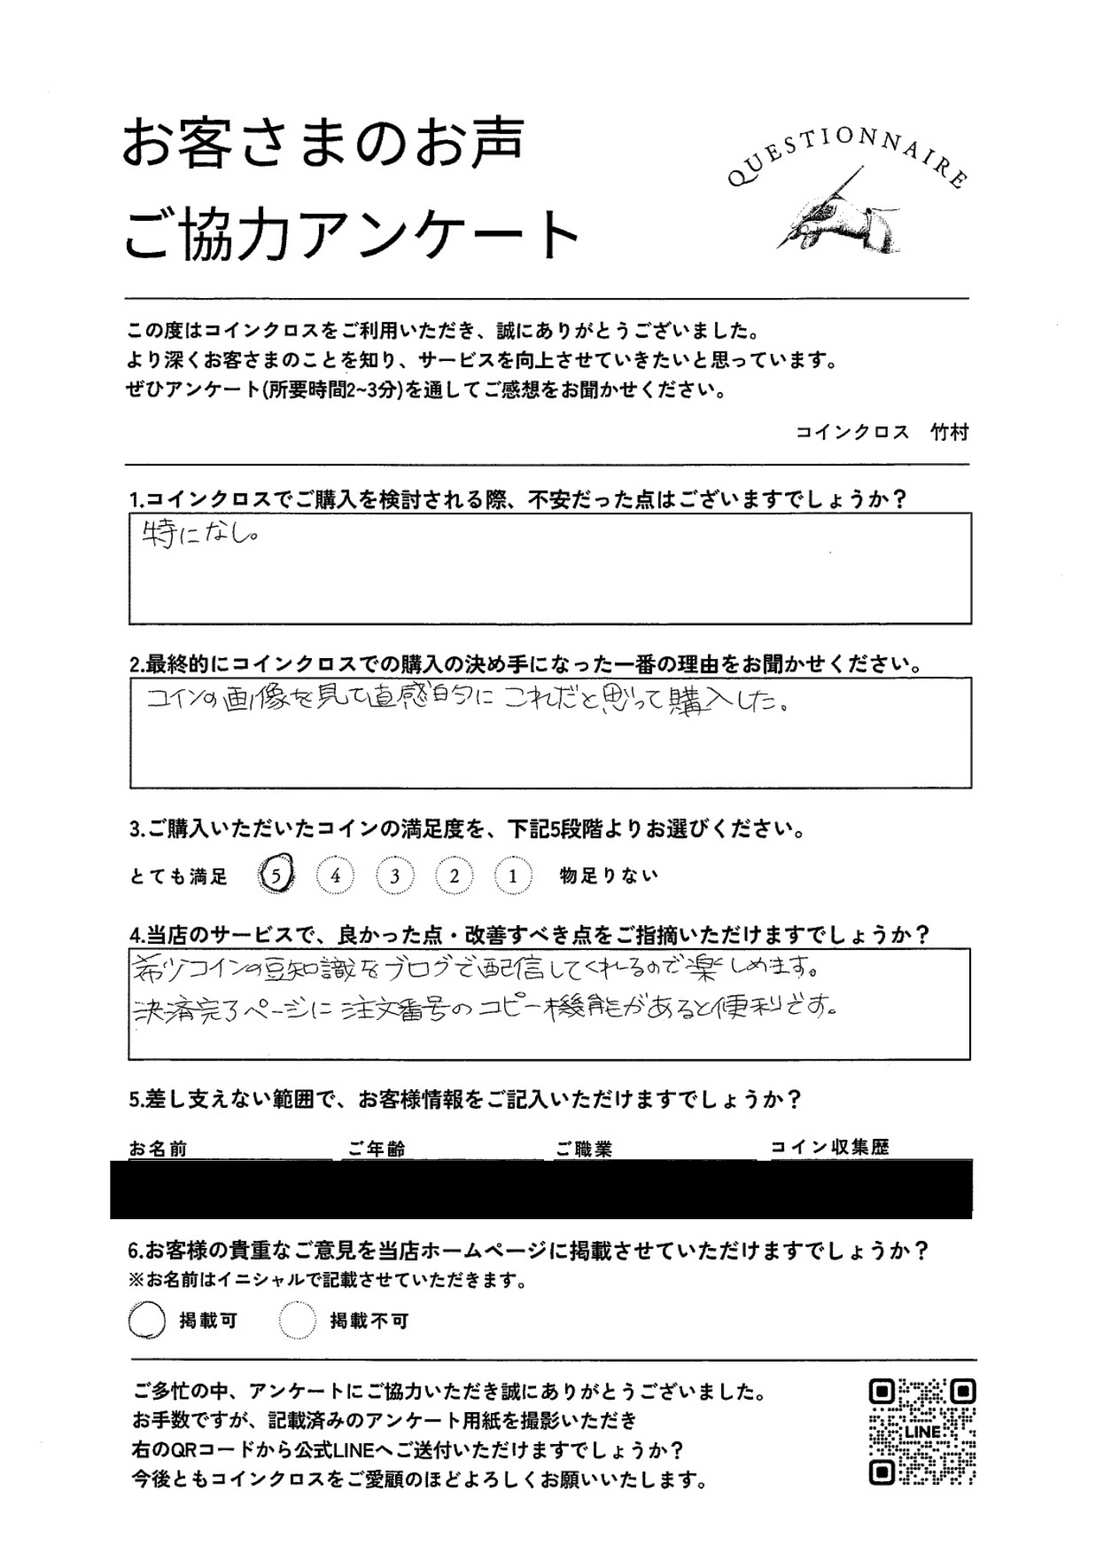 お客さまのお声
ご協力アンケート
QUESTIONNAIRE
この度はコインクロスをご利用いただき、誠にありがとうございました。
より深くお客さまのことを知り、サービスを向上させていきたいと思っています。
ぜひアンケート(所要時間2~3分)を通してご感想をお聞かせください。
コインクロス 竹村
1.コインクロスでご購入を検討される際、不安だった点はございますでしょうか？
特になし。
2.最終的にコインクロスでの購入の決め手になった一番の理由をお聞かせください。
コインの画像を見て直感的に これだと思って購入した。
3.ご購入いただいたコインの満足度を、下記5段階よりお選びください。
とても満足 5 4 3 2 1 物足りない
4.当店のサービスで、良かった点・改善すべき点をご指摘いただけますでしょうか？
希ッコインの豆知識をブログで配信してくれるので楽しめます。
決済完了ページに注文番号のコピー機能があると便利です。
5.差し支えない範囲で、お客様情報をご記入いただけますでしょうか？
お名前 ご年齢 ご職業 コイン収集歴
6.お客様の貴重なご意見を当店ホームページに掲載させていただけますでしょうか？
※お名前はイニシャルで記載させていただきます。
掲載可 掲載不可
ご多忙の中、アンケートにご協力いただき誠にありがとうございました。
お手数ですが、記載済みのアンケート用紙を撮影いただき
右のQRコードから公式LINEへご送付いただけますでしょうか？
今後ともコインクロスをご愛顧のほどよろしくお願いいたします。
LINE